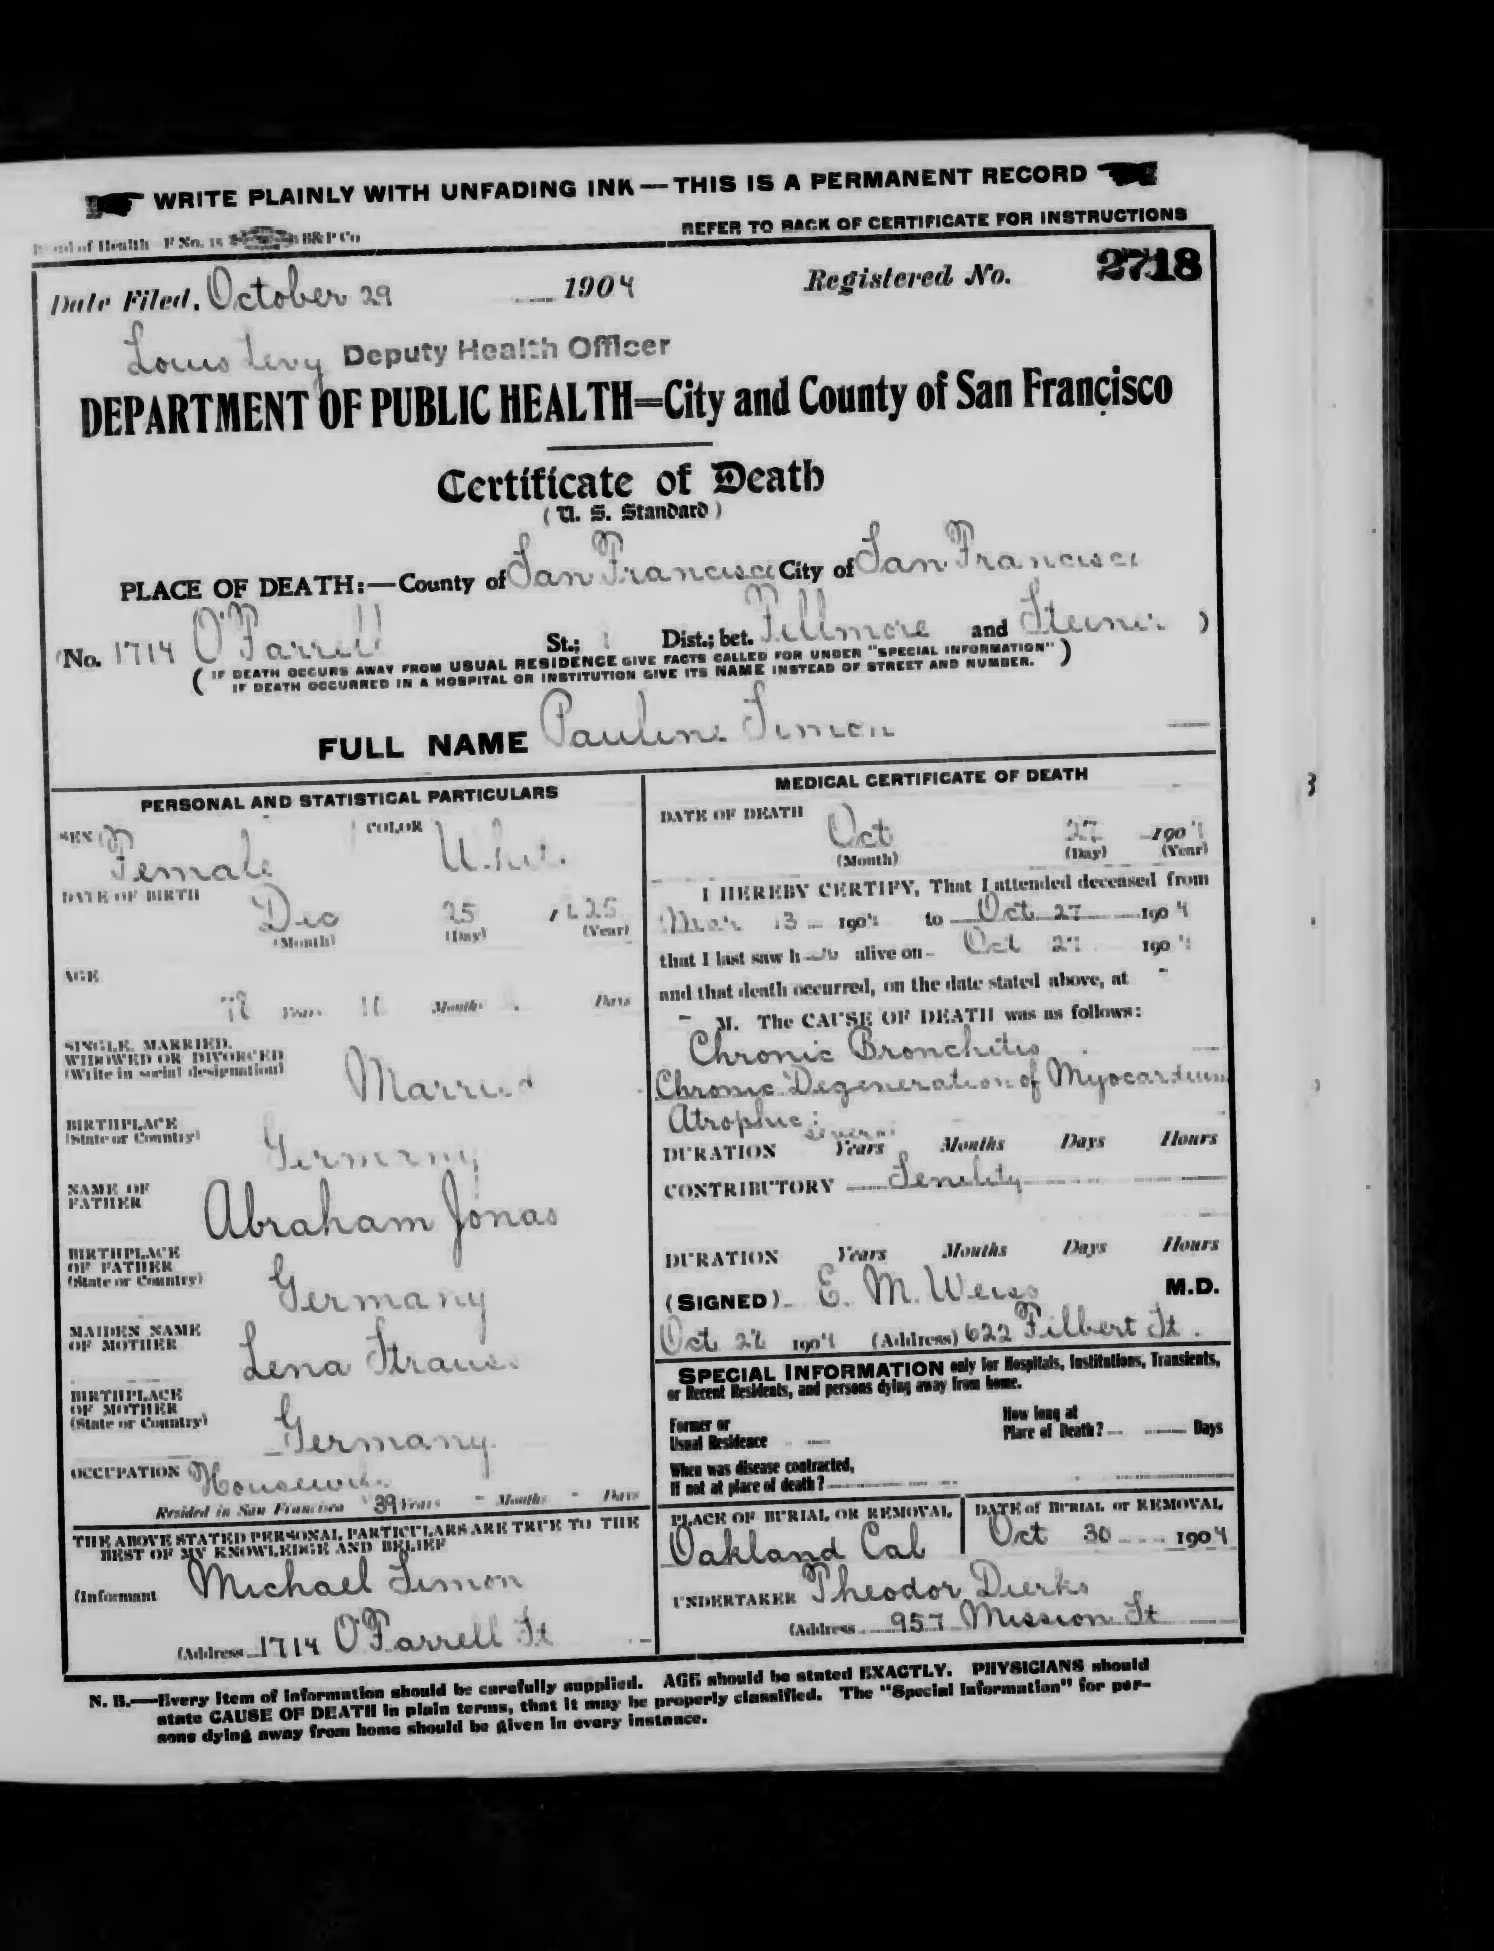 WRITE PLAINLY WITH UNFADING INK — THIS IS A PERMANENT RECORD
of Health F No. 15 B&P Co
REFER TO BACK OF CERTIFICATE FOR INSTRUCTIONS
Date Filed, October 29 1904 Registered No. 2718
Louis Levy Deputy Health Officer
DEPARTMENT OF PUBLIC HEALTH=City and County of San Francisco
Certificate of Death
(U. S. Standard)
PLACE OF DEATH:—County of San Francisco City of San Francisco
(No. 1714 O'Farrell St.; Dist.; bet. Fillmore and Steiner )
( IF DEATH OCCURS AWAY FROM USUAL RESIDENCE GIVE FACTS CALLED FOR UNDER "SPECIAL INFORMATION" )
IF DEATH OCCURRED IN A HOSPITAL OR INSTITUTION GIVE ITS NAME INSTEAD OF STREET AND NUMBER.
FULL NAME Pauline Simon
PERSONAL AND STATISTICAL PARTICULARS
SEX Female COLOR White
DATE OF BIRTH
Dec 25 1825
(Month) (Day) (Year)
AGE
78 Years 10 Months Days
SINGLE, MARRIED,
WIDOWED OR DIVORCED
(Write in social designation)
Married
BIRTHPLACE
(State or Country)
Germany
NAME OF
FATHER
Abraham Jonas
BIRTHPLACE
OF FATHER
(State or Country)
Germany
MAIDEN NAME
OF MOTHER
Lena Straus
BIRTHPLACE
OF MOTHER
(State or Country)
Germany
OCCUPATION Housewife
Resided in San Francisco 39 Years - Months - Days
THE ABOVE STATED PERSONAL PARTICULARS ARE TRUE TO THE
BEST OF MY KNOWLEDGE AND BELIEF
(Informant Michael Simon
(Address 1714 O'Farrell St
MEDICAL CERTIFICATE OF DEATH
DATE OF DEATH
Oct 27 1904
(Month) (Day) (Year)
I HEREBY CERTIFY, That I attended deceased from
Mar 13 1904 to Oct 27 1904
that I last saw h alive on Oct 27 1904
and that death occurred, on the date stated above, at -
- M. The CAUSE OF DEATH was as follows:
Chronic Bronchitis
Chronic Degeneration of Myocardium
Atrophic
several
DURATION Years Months Days Hours
CONTRIBUTORY Senility
DURATION Years Months Days Hours
(SIGNED) E. M. Weiss M.D.
Oct 1904 (Address) 622 Filbert St.
SPECIAL INFORMATION only for Hospitals, Institutions, Transients,
or Recent Residents, and persons dying away from home.
Former or
Usual Residence
How long at
Place of Death? Days
When was disease contracted,
If not at place of death?
PLACE OF BURIAL OR REMOVAL
Oakland Cal
DATE of BURIAL or REMOVAL
Oct 30 1904
UNDERTAKER Theodor Dierks
(Address 957 Mission St
N. B.—Every item of information should be carefully supplied. AGE should be stated EXACTLY. PHYSICIANS should
state CAUSE OF DEATH in plain terms, that it may be properly classified. The "Special Information" for per-
sons dying away from home should be given in every instance.